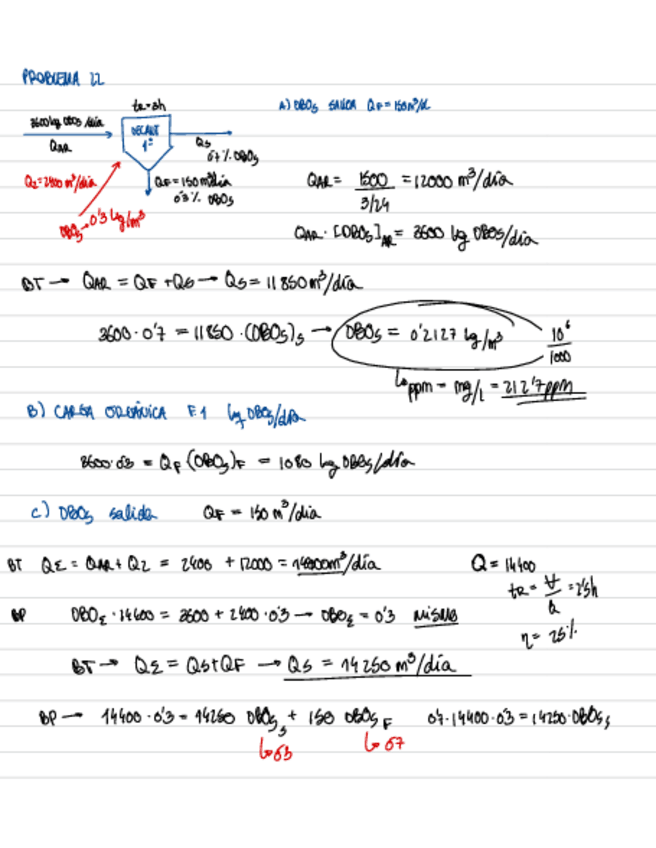 PROBLEMA 22
tR=3h
A) DBO5 SALIDA QF=150m³/d
3600kg DBO5/día
DECANT
1º
QAR
QS
0'7 % DBO5
Q2=2400 m³/día
QF=150 m³/día
0'3 % DBO5
DBO5→0'3 kg/m³
QAR = 1500 / 3/24 = 12000 m³/día
QAR · [DBO5]AR = 3600 kg DBO5/día
BT → QAR = QF + QS → QS = 11850 m³/día
3600·0'7 = 11850·(DBO5)S → DBO5 = 0'2127 kg/m³
10⁶
1000
ppm = mg/L = 212'7ppm
B) CARGA ORGÁNICA F1 kg DBO5/día
3600·0'3 = QF (DBO5)F = 1080 kg DBO5/día
C) DBO5 salida QF = 150 m³/día
BT QE = QAR + Q2 = 2400 + 12000 = 14400m³/día
Q = 14400
tR = V/Q = 2'5h
η = 25%
BP DBOE·14400 = 3600 + 2400·0'3 → DBOE = 0'3 MISMO
BT → QE = QS+QF → QS = 14250 m³/día
BP → 14400·0'3 = 14250 DBO5S + 150 DBO5F
0'7·14400·0'3 = 14250·DBO5S
↳ 0'7